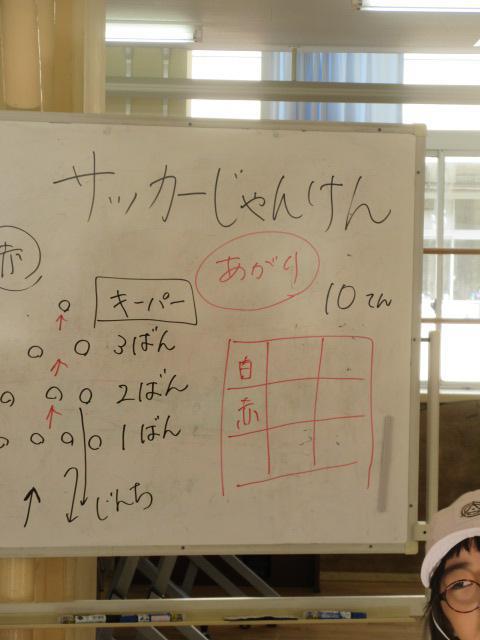 サッカーじゃんけん
赤
あがり
キーパー
10てん
3ばん
2ばん
1ばん
じんち
白
赤